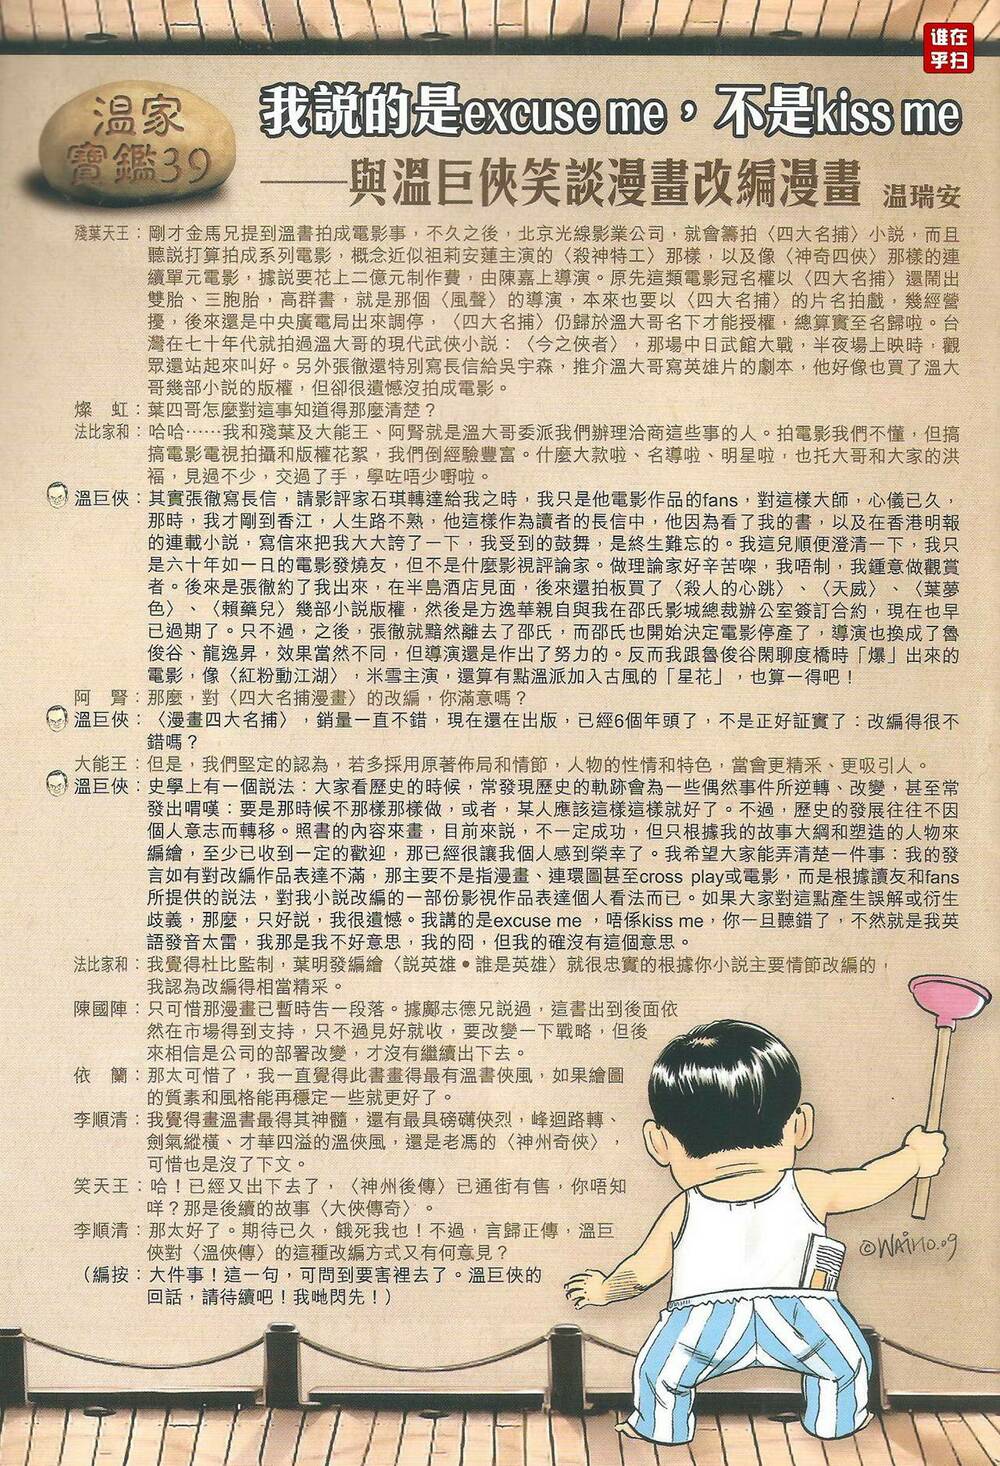 谁在
乎扫
溫家
寶鑑39
我説的是excuse me，不是kiss me
——與溫巨俠笑談漫畫改編漫畫 溫瑞安
殘葉天王：剛才金馬兄提到溫書拍成電影事，不久之後，北京光線影業公司，就會籌拍〈四大名捕〉小説，而且
聽説打算拍成系列電影，概念近似祖莉安蓮主演的〈殺神特工〉那樣，以及像〈神奇四俠〉那樣的連
續單元電影，據説要花上二億元制作費，由陳嘉上導演。原先這類電影冠名權以〈四大名捕〉還鬧出
雙胎、三胞胎，高群書，就是那個〈風聲〉的導演，本來也要以〈四大名捕〉的片名拍戲，幾經營
擾，後來還是中央廣電局出來調停，〈四大名捕〉仍歸於溫大哥名下才能授權，總算實至名歸啦。台
灣在七十年代就拍過溫大哥的現代武俠小説：〈今之俠者〉，那場中日武館大戰，半夜場上映時，觀
眾還站起來叫好。另外張徹還特別寫長信給吳宇森，推介溫大哥寫英雄片的劇本，他好像也買了溫大
哥幾部小説的版權，但卻很遺憾沒拍成電影。
燦　虹：葉四哥怎麼對這事知道得那麼清楚？
法比家和：哈哈……我和殘葉及大能王、阿腎就是溫大哥委派我們辦理洽商這些事的人。拍電影我們不懂，但搞
搞電影電視拍攝和版權花絮，我們倒經驗豐富。什麼大款啦、名導啦、明星啦，也托大哥和大家的洪
福，見過不少，交過了手，學咗唔少嘢啦。
溫巨俠：其實張徹寫長信，請影評家石琪轉達給我之時，我只是他電影作品的fans，對這樣大師，心儀已久，
那時，我才剛到香江，人生路不熟，他這樣作為讀者的長信中，他因為看了我的書，以及在香港明報
的連載小説，寫信來把我大大誇了一下，我受到的鼓舞，是終生難忘的。我這兒順便澄清一下，我只
是六十年如一日的電影發燒友，但不是什麼影視評論家。做理論家好辛苦㗎，我唔制，我鍾意做觀賞
者。後來是張徹約了我出來，在半島酒店見面，後來還拍板買了〈殺人的心跳〉、〈天威〉、〈葉夢
色〉、〈賴藥兒〉幾部小説版權，然後是方逸華親自與我在邵氏影城總裁辦公室簽訂合約，現在也早
已過期了。只不過，之後，張徹就黯然離去了邵氏，而邵氏也開始決定電影停產了，導演也換成了魯
俊谷、龍逸昇，效果當然不同，但導演還是作出了努力的。反而我跟魯俊谷閑聊度橋時「爆」出來的
電影，像〈紅粉動江湖〉，米雪主演，還算有點溫派加入古風的「星花」，也算一得吧！
阿　腎：那麼，對〈四大名捕漫畫〉的改編，你滿意嗎？
溫巨俠：〈漫畫四大名捕〉，銷量一直不錯，現在還在出版，已經6個年頭了，不是正好証實了：改編得很不
錯嗎？
大能王：但是，我們堅定的認為，若多採用原著佈局和情節，人物的性情和特色，當會更精釆、更吸引人。
溫巨俠：史學上有一個説法：大家看歷史的時候，常發現歷史的軌跡會為一些偶然事件所逆轉、改變，甚至常
發出喟嘆：要是那時候不那樣那樣做，或者，某人應該這樣這樣就好了。不過，歷史的發展往往不因
個人意志而轉移。照書的內容來畫，目前來説，不一定成功，但只根據我的故事大綱和塑造的人物來
編繪，至少已收到一定的歡迎，那已經很讓我個人感到榮幸了。我希望大家能弄清楚一件事：我的發
言如有對改編作品表達不滿，那主要不是指漫畫、連環圖甚至cross play或電影，而是根據讀友和fans
所提供的説法，對我小説改編的一部份影視作品表達個人看法而已。如果大家對這點產生誤解或衍生
歧義，那麼，只好説，我很遺憾。我講的是excuse me ，唔係kiss me，你一旦聽錯了，不然就是我英
語發音太雷，我那是我不好意思，我的冏，但我的確沒有這個意思。
法比家和：我覺得杜比監制，葉明發編繪〈説英雄•誰是英雄〉就很忠實的根據你小説主要情節改編的，
我認為改編得相當精采。
陳國陣：只可惜那漫畫已暫時告一段落。據鄺志德兄説過，這書出到後面依
然在市場得到支持，只不過見好就收，要改變一下戰略，但後
來相信是公司的部署改變，才沒有繼續出下去。
依　蘭：那太可惜了，我一直覺得此書畫得最有溫書俠風，如果繪圖
的質素和風格能再穩定一些就更好了。
李順清：我覺得畫溫書最得其神髓，還有最具磅礴俠烈，峰迴路轉、
劍氣縱橫、才華四溢的溫俠風，還是老馮的〈神州奇俠〉，
可惜也是沒了下文。
笑天王：哈！已經又出下去了，〈神州後傳〉已通街有售，你唔知
咩？那是後續的故事〈大俠傳奇〉。
李順清：那太好了。期待已久，餓死我也！不過，言歸正傳，溫巨
俠對〈溫俠傳〉的這種改編方式又有何意見？
（編按：大件事！這一句，可問到要害裡去了。溫巨俠的
回話，請待續吧！我哋閃先！）
©WAiHO.09